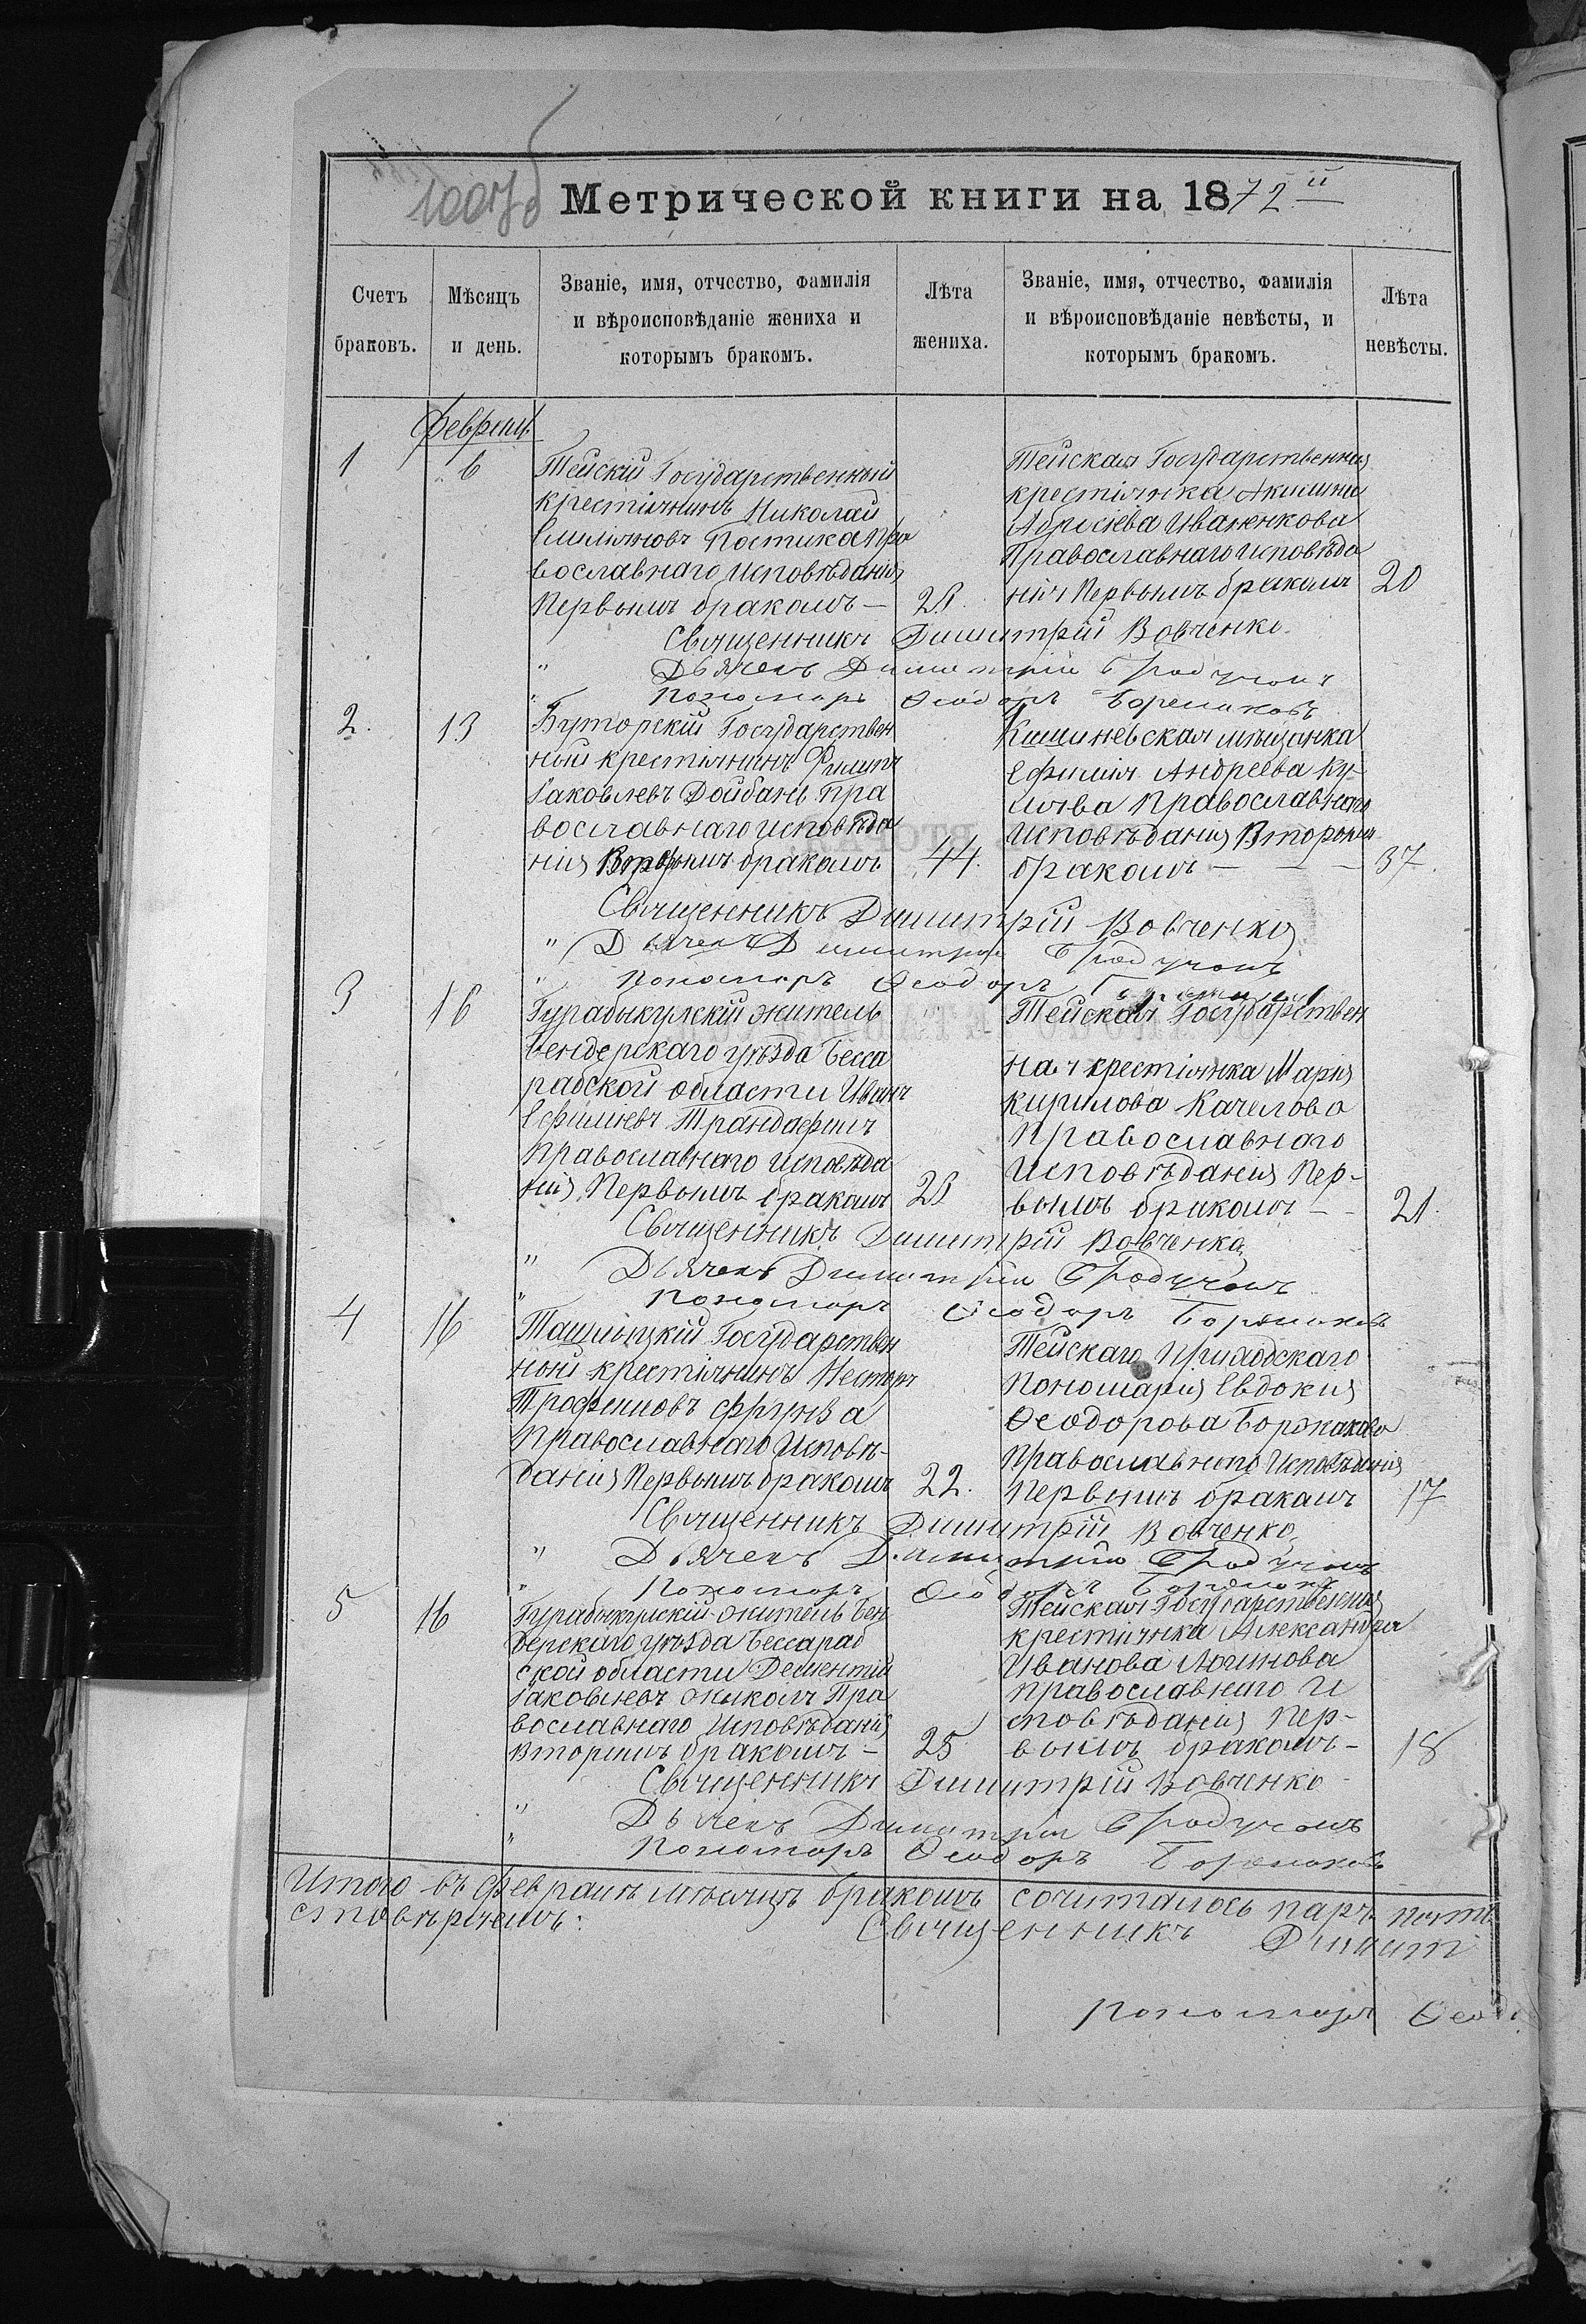 Метрической книги на 1872й
Счетъ браковъ.
Мѣсяцъ и день.
Званіе, имя, отчество, фамилія
и вѣроисповѣданіе жениха и
которымъ бракомъ.
Лѣта жениха.
Званіе, имя, отчество, фамилія
и вѣроисповѣданіе невѣсты, и
которымъ бракомъ.
Лѣта невѣсты.
1
6
Тейскій Государственный
крестіянинъ Николай
Емиліяновъ Постика Пра
вославнаго Исповѣданія
Первымъ бракомъ —
Тейская Государственная
крестіянка Акилина
Иваненкова
Православнаго исповѣда
нія Первымъ бракомъ
20
Священникъ Димитрій Вовченко
" Дьячекъ Димитрій
" Пономарь Ѳеодоръ
2.
13
Буторскій Государствен
ный крестіянинъ Филипъ
Іаковлевъ Дойбанъ Пра
вославнаго исповѣда
нія Вторымъ бракомъ
44.
Кишиневская мѣщанка
Ефимія Андреева Ку-
Православнаго
Исповѣданія Вторымъ
бракомъ — — —
37.
Священникъ Димитрій Вовченко
" Дьячекъ Димитрій
" Пономарь Ѳеодоръ
3
16
Гурабыкулскій житель
Бендерскаго уѣзда Бесса
рабской области Иванъ
Ефимиевъ Трандафилъ
Православнаго исповѣда
нія, Первымъ бракомъ
Тейская Государствен
ная крестіянка Марія
Кирилова Качелова
Православнаго
Исповѣданія Пер-
вымъ бракомъ — —
21.
Священникъ Димитрій Вовченко
" Дьячекъ Димитрій
" Пономарь Ѳеодоръ
4
16
Ташлыцкій Государствен
ный крестіянинъ Несторъ
Трофимовъ Фрунза
Православнаго Исповѣ-
данія Первымъ бракомъ
22.
Тейскаго Приходскаго
Пономаря Евдокия
Ѳеодорова
Православнаго Исповѣданія
Первымъ бракомъ
17
Священникъ Димитрій Вовченко
" Дьячекъ Димитрій
" Пономарь Ѳеодоръ
5
16
Гурабыкулскій житель Бен
дерскаго уѣзда Бессараб
ской области Дементій
Іаковлевъ Пра
вославнаго Исповѣданія
Вторымъ бракомъ —
25
Тейская Государственная
крестіянка Александра
Иванова Логинова
Православнаго И
сповѣданія Пер-
вымъ бракомъ —
18
Священникъ Димитрій Вовченко
" Дьячекъ Димитрій
" Пономарь Ѳеодоръ
Итого въ Февралѣ мѣсяцѣ бракомъ сочиталось паръ пять
Священникъ Димит
Пономарь Ѳеод